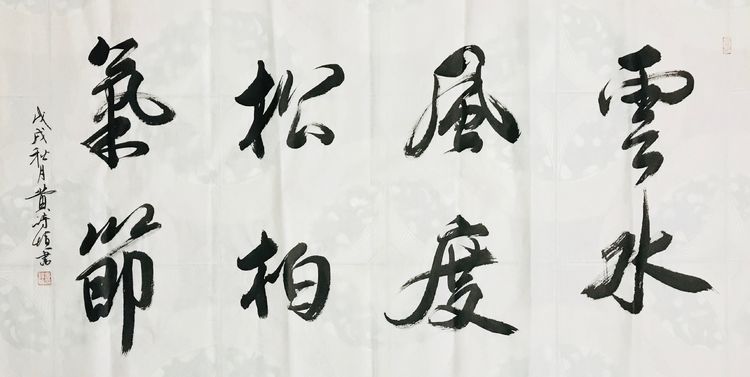 雲水
風度
松柏
氣節
戊戌秋月黄
書